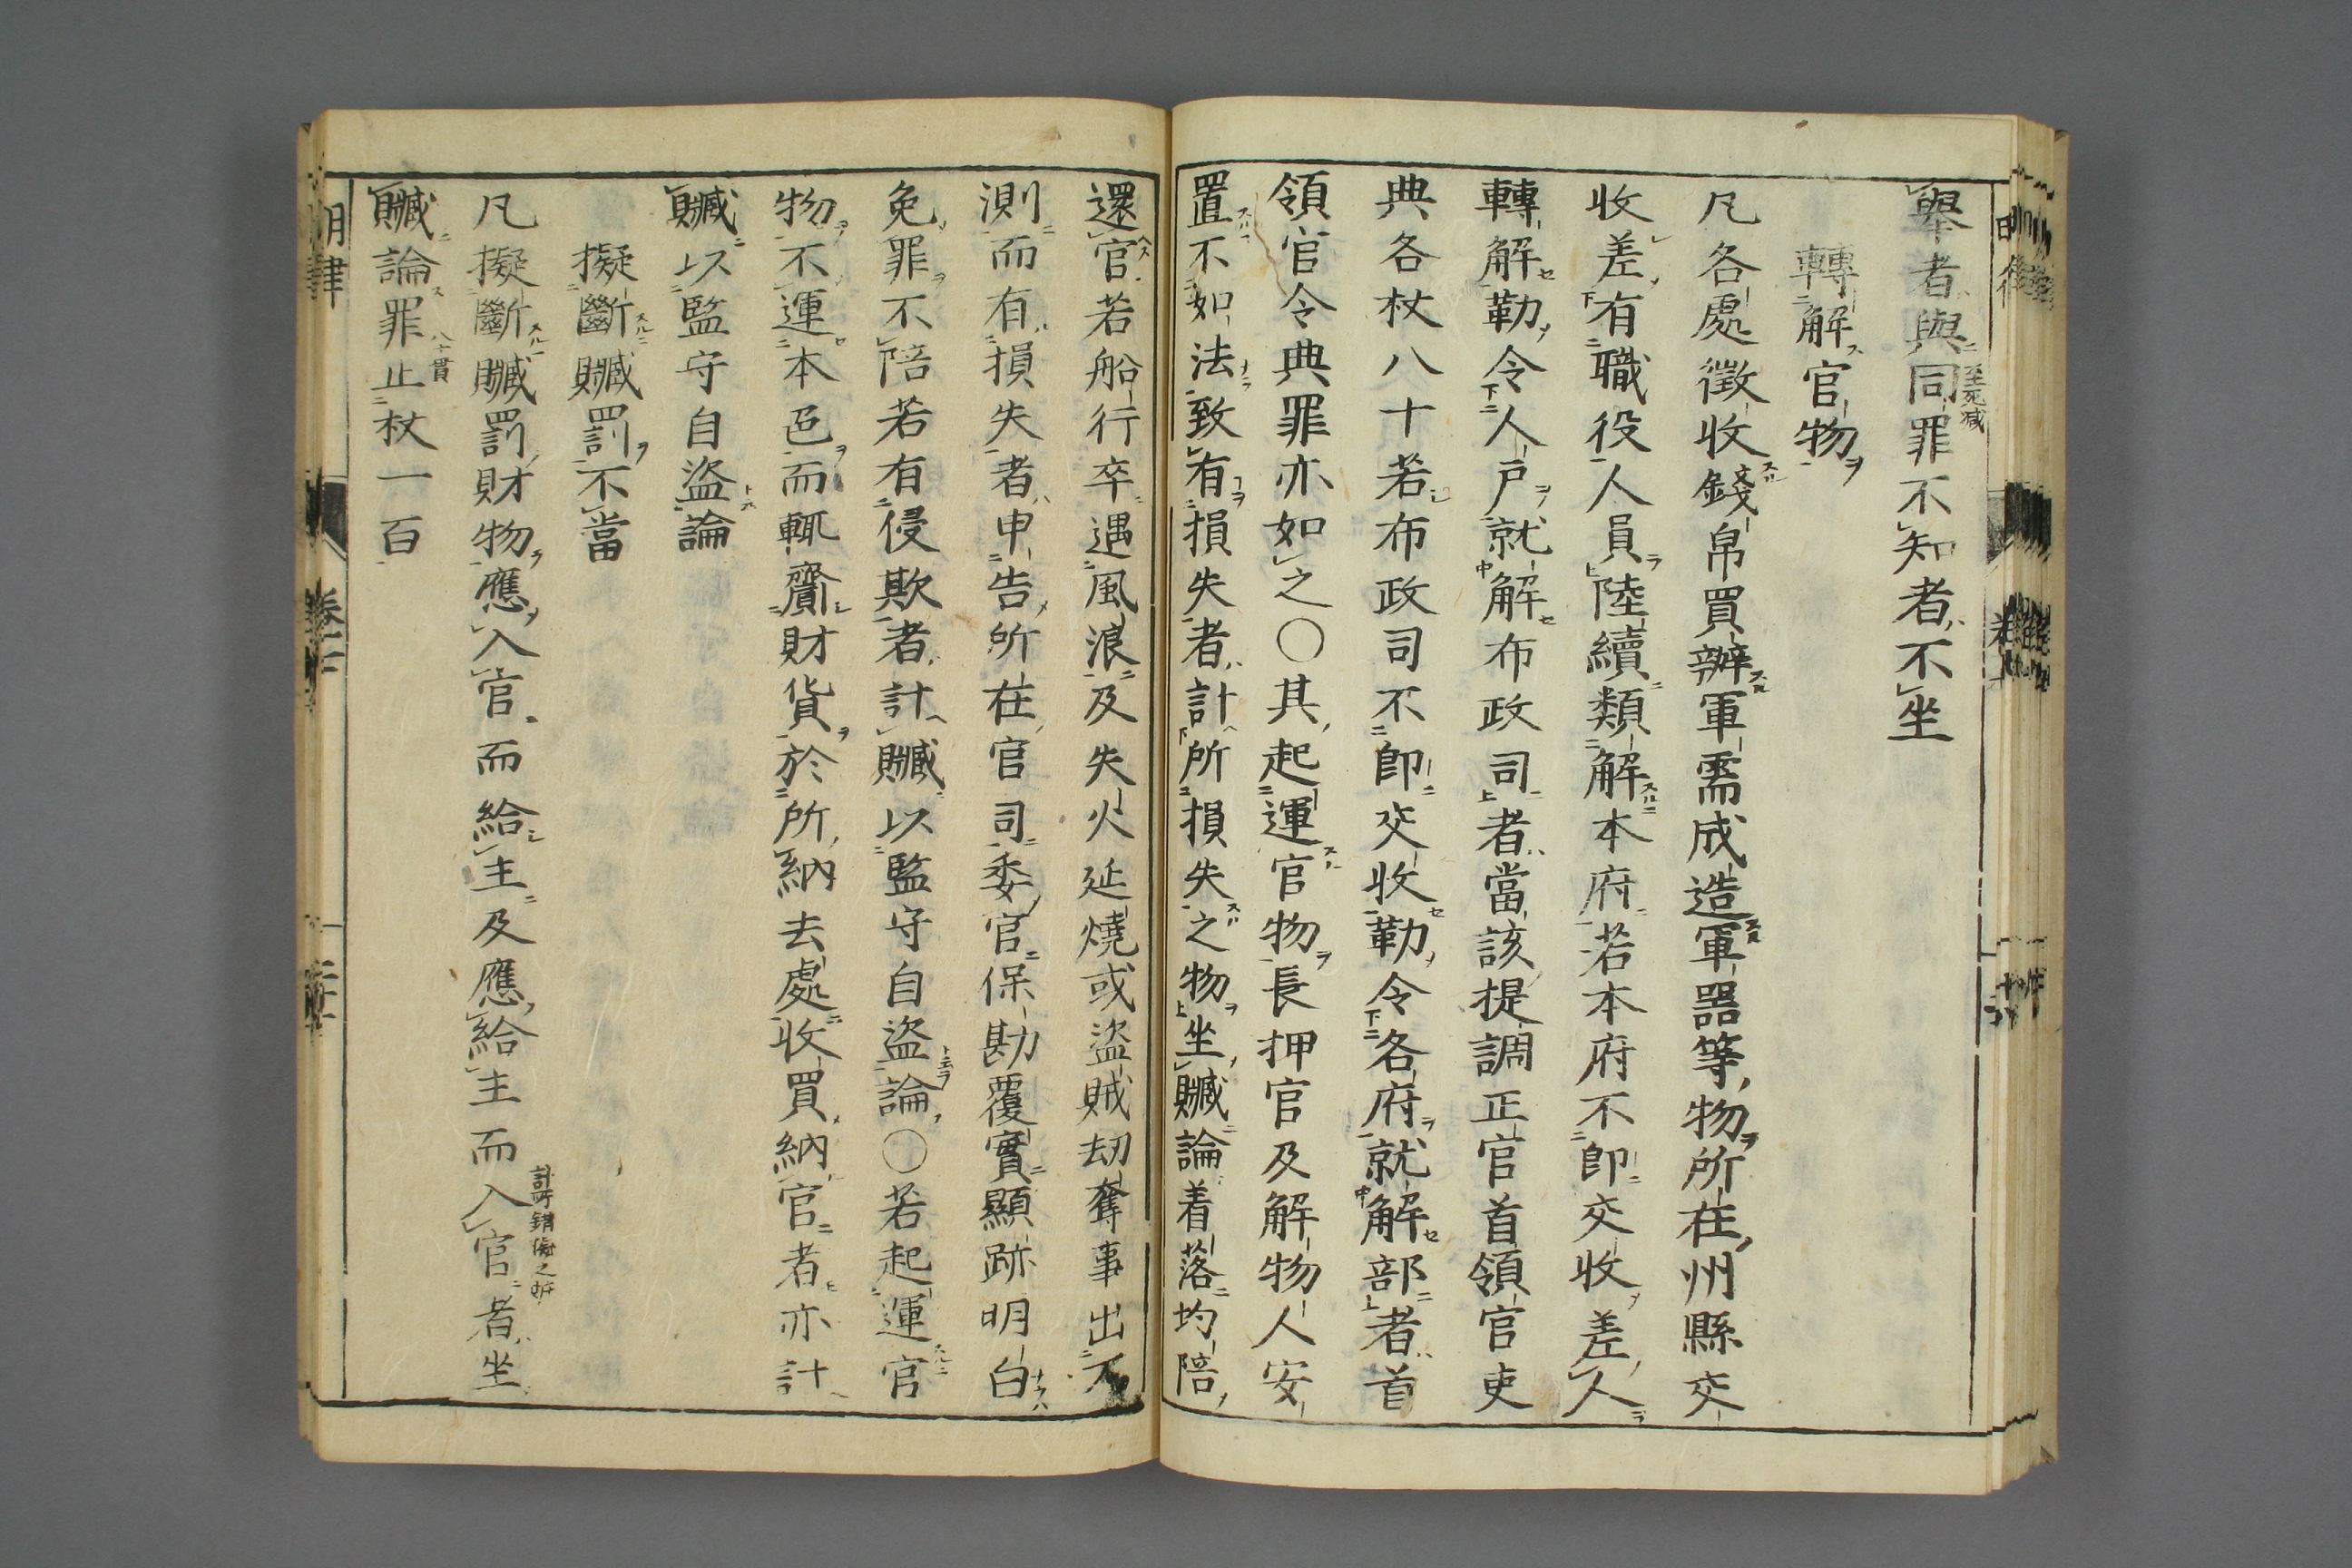 舉者與同罪不知者不坐
至死減
轉解官物
凡各處徵收錢帛買辦軍需成造軍器等物所在州縣交
收差有職役人員陸續類解本府若本府不卽交收差人
轉解勒令人戶就解布政司者當該提調正官首領官吏
典各杖八十若布政司不卽交收勒令各府就解部者首
領官令典罪亦如之〇其起運官物長押官及解物人安
置不如法致有損失者計所損失之物坐贓論着落均陪
還官若船行卒遇風浪及失火延燒或盜賊劫奪事出不
測而有損失者申告所在官司委官保勘覆實顯跡明白
免罪不陪若有侵欺者計贓以監守自盜論〇若起運官
物不運本色而輒齎財貨於所納去處收買納官者亦計
贓以監守自盜論
擬斷贓罰不當
凡擬斷贓罰財物應入官而給主及應給主而入官者坐
贓論罪止杖一百
八十貫
明律
卷二